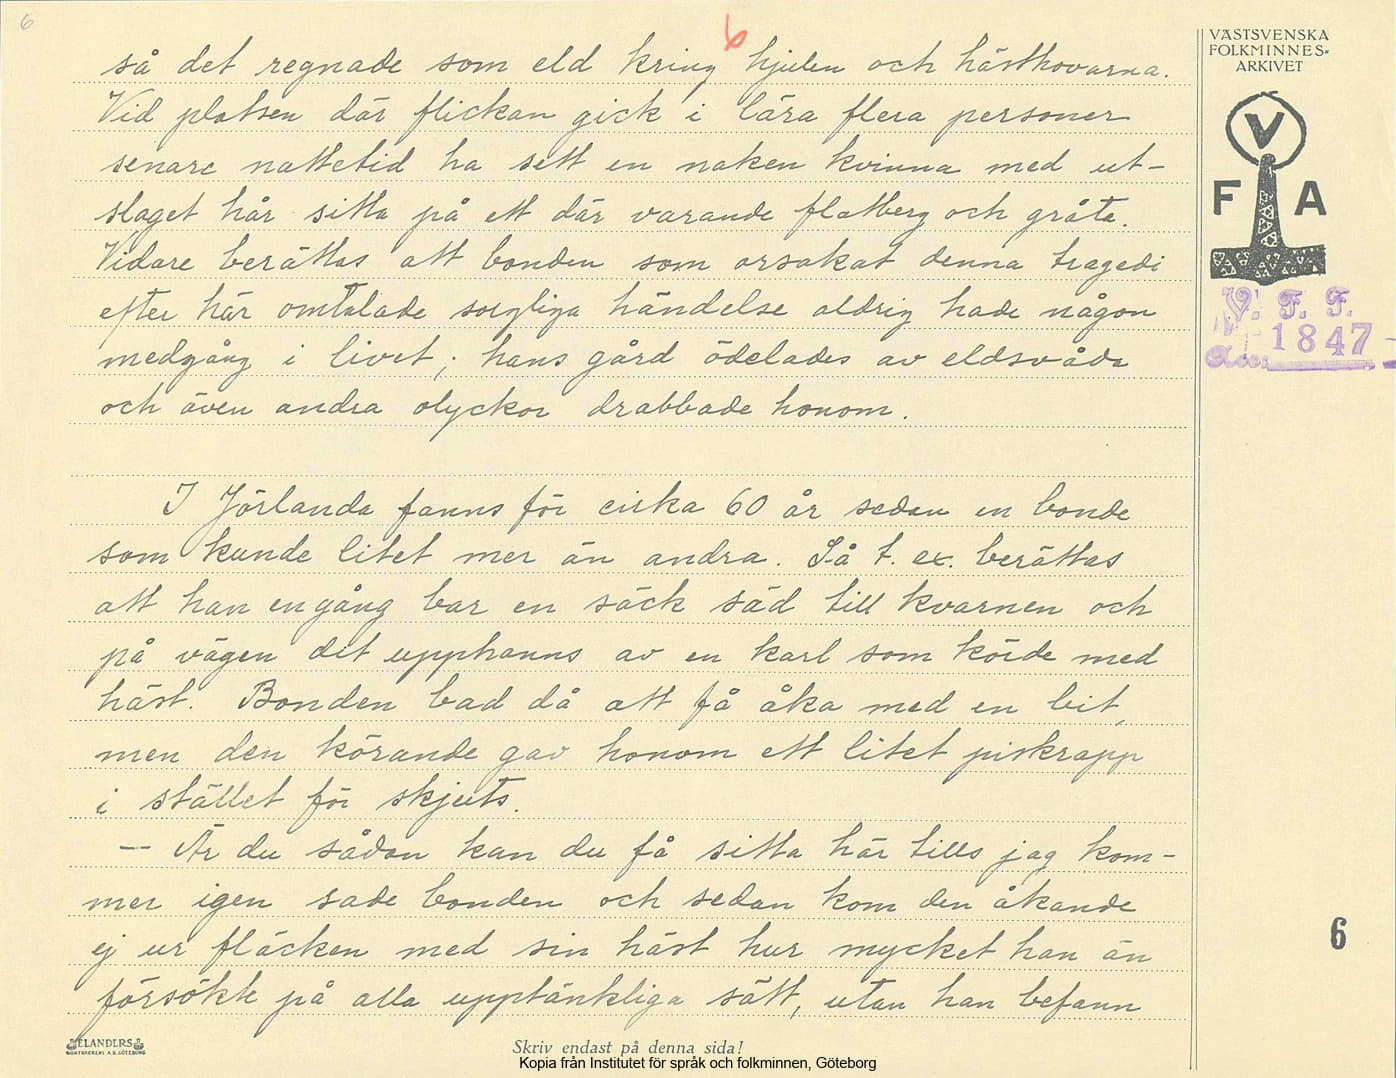 6
6
VÄSTSVENSKA
FOLKMINNES-
ARKIVET
V
F A
V. F. F.
1847
Acc.
så det regnade som eld kring hjulen och hästhovarna.
Vid platsen där flickan gick i lära flera personer
senare nattetid ha sett en naken kvinna med ut-
slaget hår sitta på ett där varande flatberg och gråta.
Vidare berättas att bonden som orsakat denna tragedi
efter här omtalade sorgliga händelse aldrig hade någon
medgång i livet; hans gård ödelades av eldsvåda
och även andra olyckor drabbade honom.
I Jörlanda fanns för cirka 60 år sedan en bonde
som kunde litet mer än andra. Så t. ex. berättas
att han en gång bar en säck säd till kvarnen och
på vägen dit upphanns av en karl som körde med
häst. Bonden bad då att få åka med en bit,
men den körande gav honom ett litet piskrapp
i stället för skjuts.
— Är du sådan kan du få sitta här tills jag kom-
mer igen sade bonden och sedan kom den åkande
ej ur fläcken med sin häst hur mycket han än
försökte på alla upptänkliga sätt, utan han befann
6
ELANDERS
BOKTRYCKERI A.B. GÖTEBORG
Skriv endast på denna sida!
Kopia från Institutet för språk och folkminnen, Göteborg